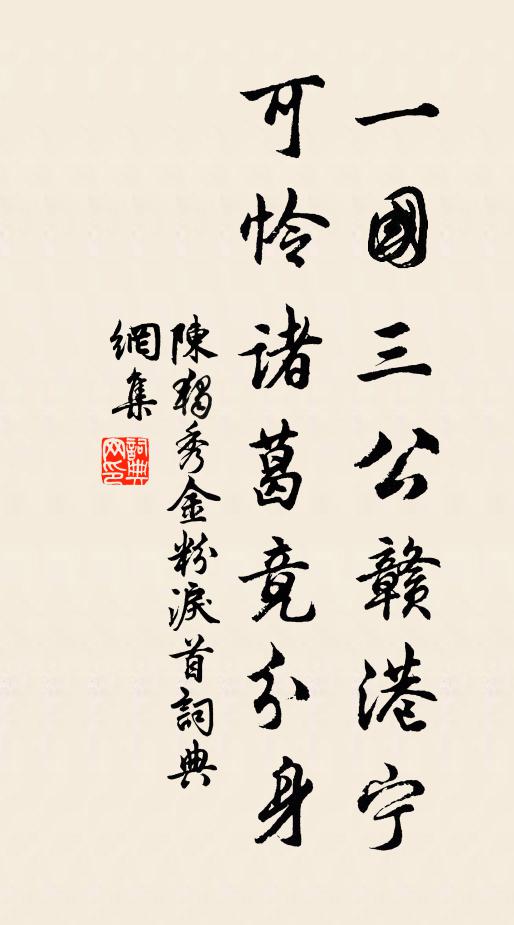 一國三公贛港宁
可怜诸葛竟分身
陳獨秀金粉淚首詞典
網集
詞典网印